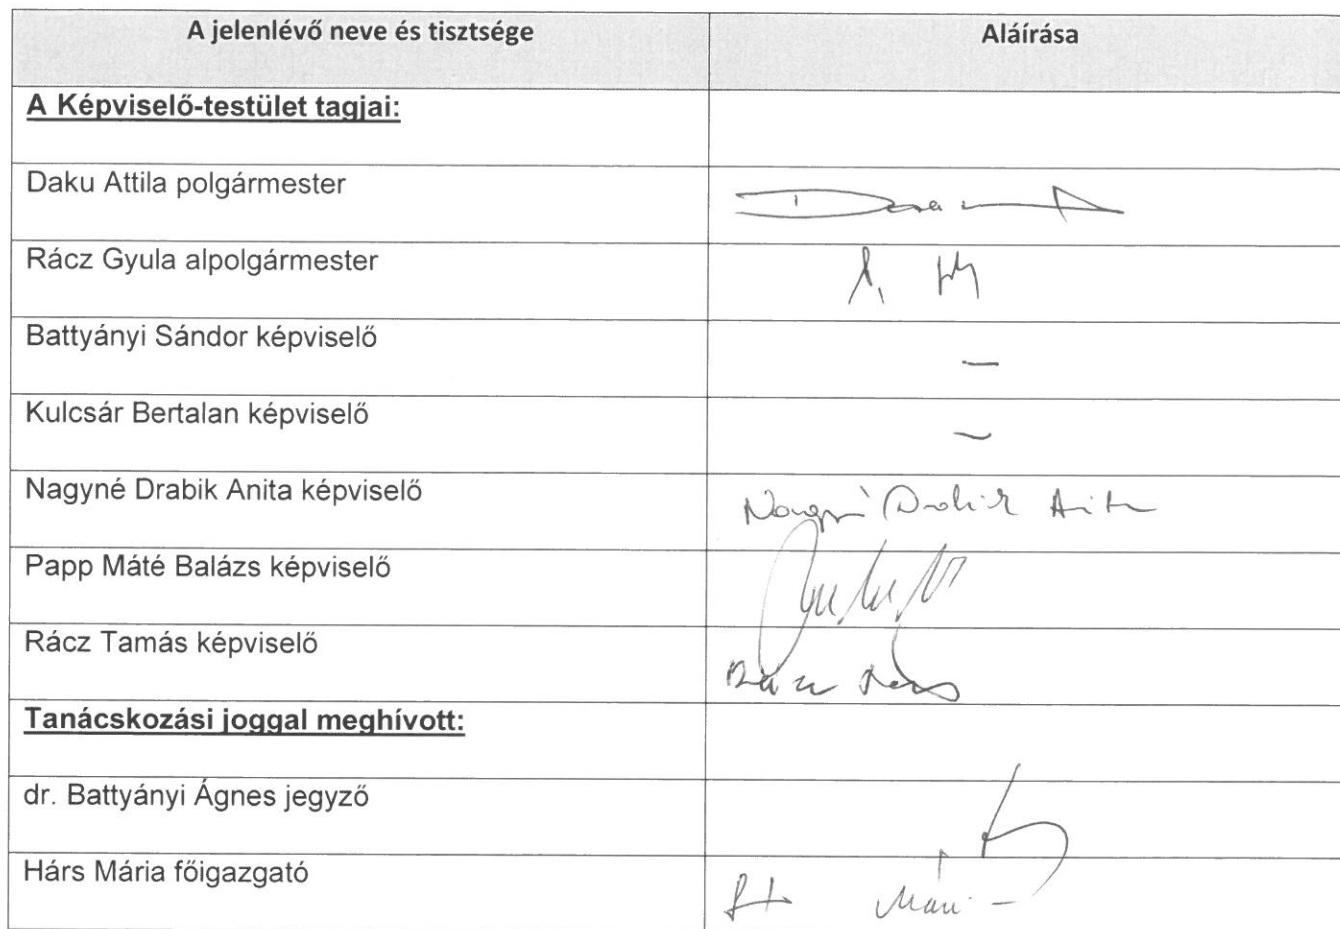 A jelenlévő neve és tisztsége Aláírása
A Képviselő-testület tagjai:
Daku Attila polgármester
Rácz Gyula alpolgármester
Battyányi Sándor képviselő –
Kulcsár Bertalan képviselő ~
Nagyné Drabik Anita képviselő Nagyné Drabik Anita
Papp Máté Balázs képviselő
Rácz Tamás képviselő
Tanácskozási joggal meghívott:
dr. Battyányi Ágnes jegyző
Hárs Mária főigazgató